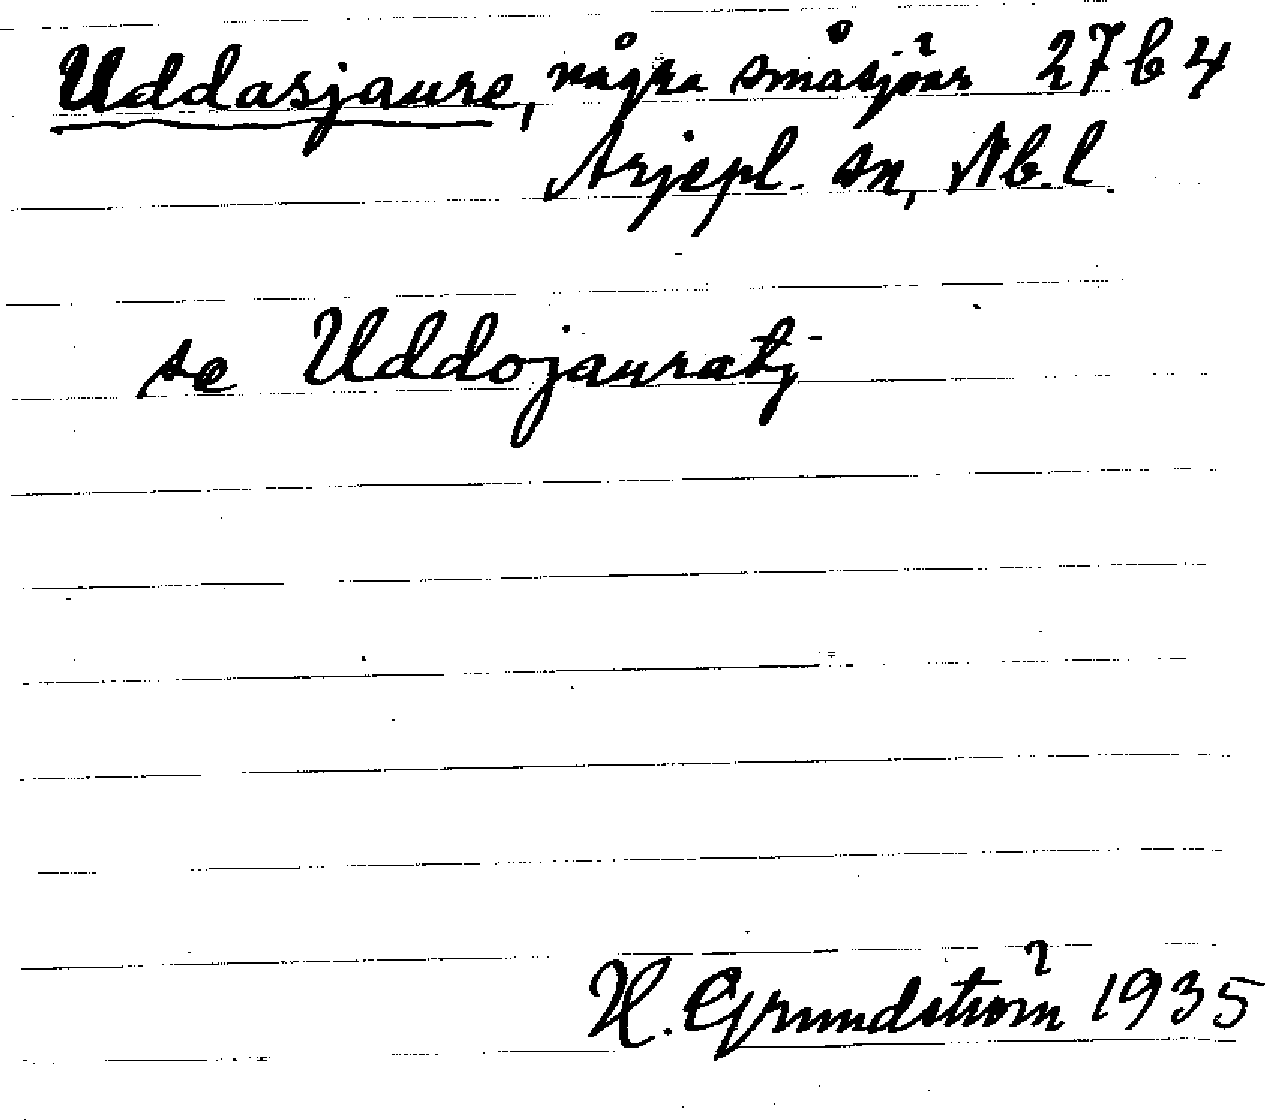 Uddasjaure, några småsjöar 27 b 4
Arjepl. sn, Nb. l.
se Uddojauratj
H. Grundström 1935